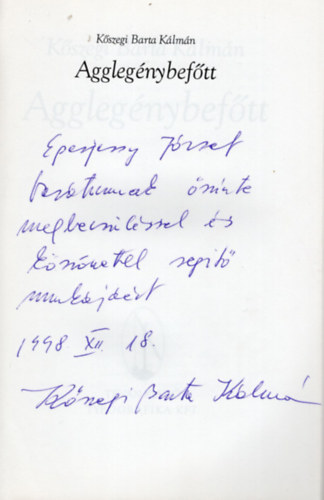 Kőszegi Barta Kálmán
Agglegénybefőtt
József
barátunknak őszinte
megbecsüléssel és
köszönettel segítő
munkájáért
1998 XII. 18.
Kőszegi Barta Kálmán